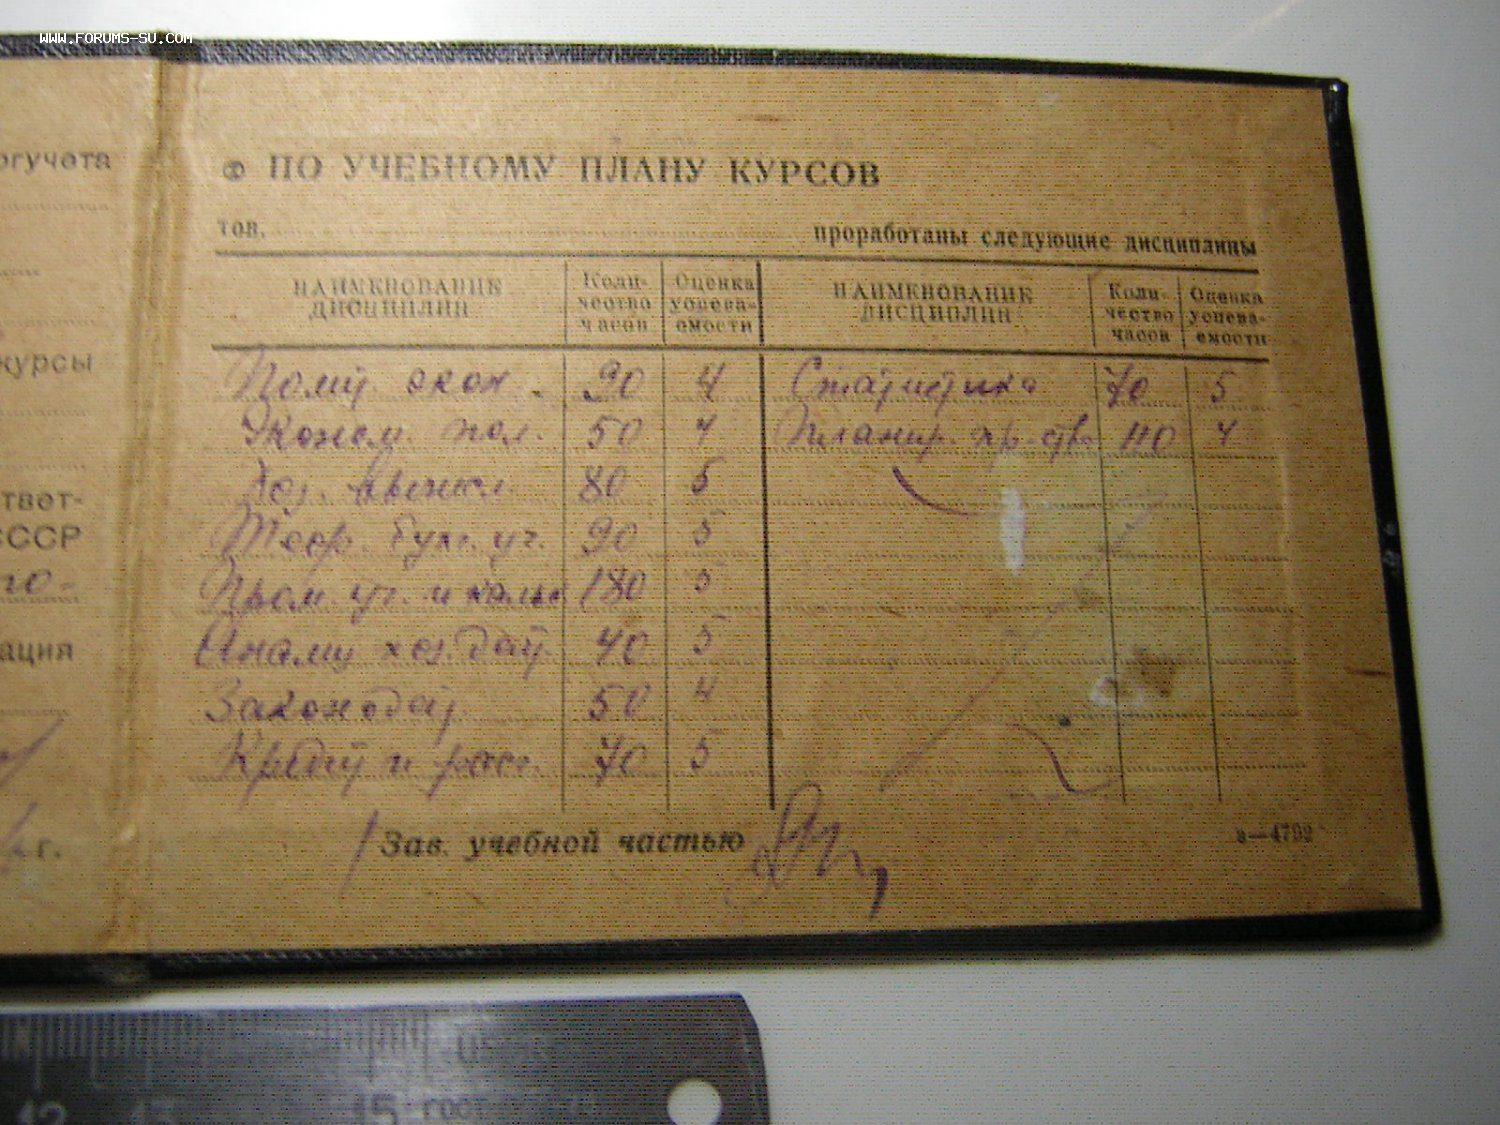 WWW.FORUMS-SU.COM
огучета
курсы
 твет-
СССР
го-
ация
г.
ПО УЧЕБНОМУ ПЛАНУ КУРСОВ
тов. проработаны следующие дисциплины
НАИМЕНОВАНИЕ ДИСЦИПЛИН Коли- Оценка НАИМЕНОВАНИЕ ДИСЦИПЛИН Коли- Оценка
чество успева- чество успева-
часов емости часов емости
Полит. экон. 90 4 Статистика 70 5
Эконом. пол. 50 4 Планир. пр-тва 110 4
Хоз. 80 5
Теор. бух. уч. 90 5
Пром. уч. и кальк 180 5
Анализ хоз. деят. 40 5
Законодат 50 4
Кредит и расч. 70 5
Зав. учебной частью
з—4792
12 13 15 ГОСТ